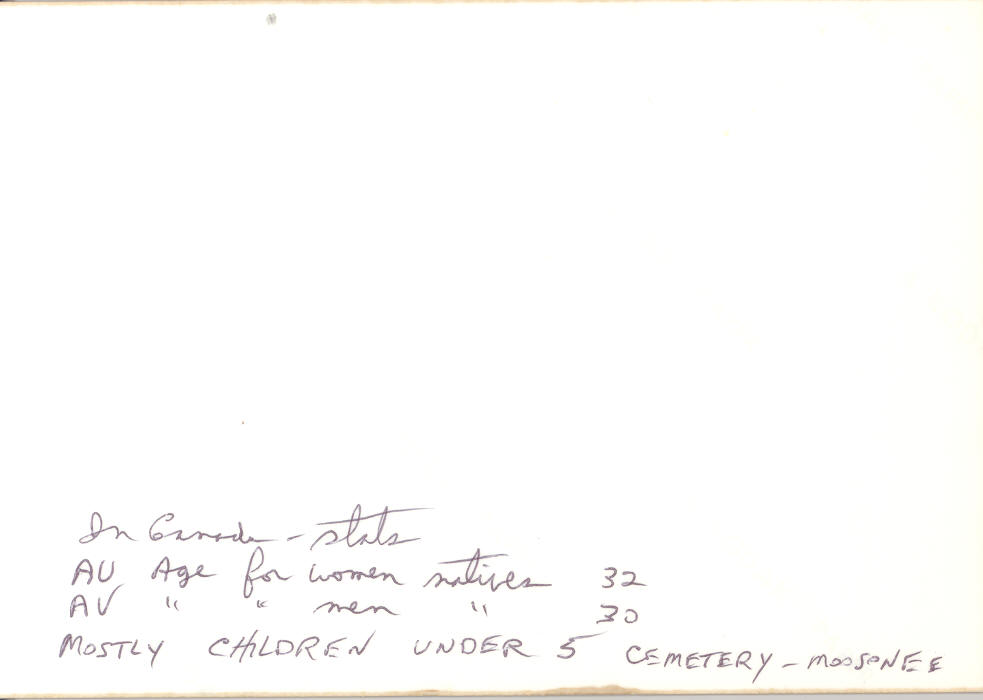 In Canada - stats
AV Age for women natives 32
AV " " men " 30
MOSTLY CHILDREN UNDER 5 CEMETERY - MOOSONEE